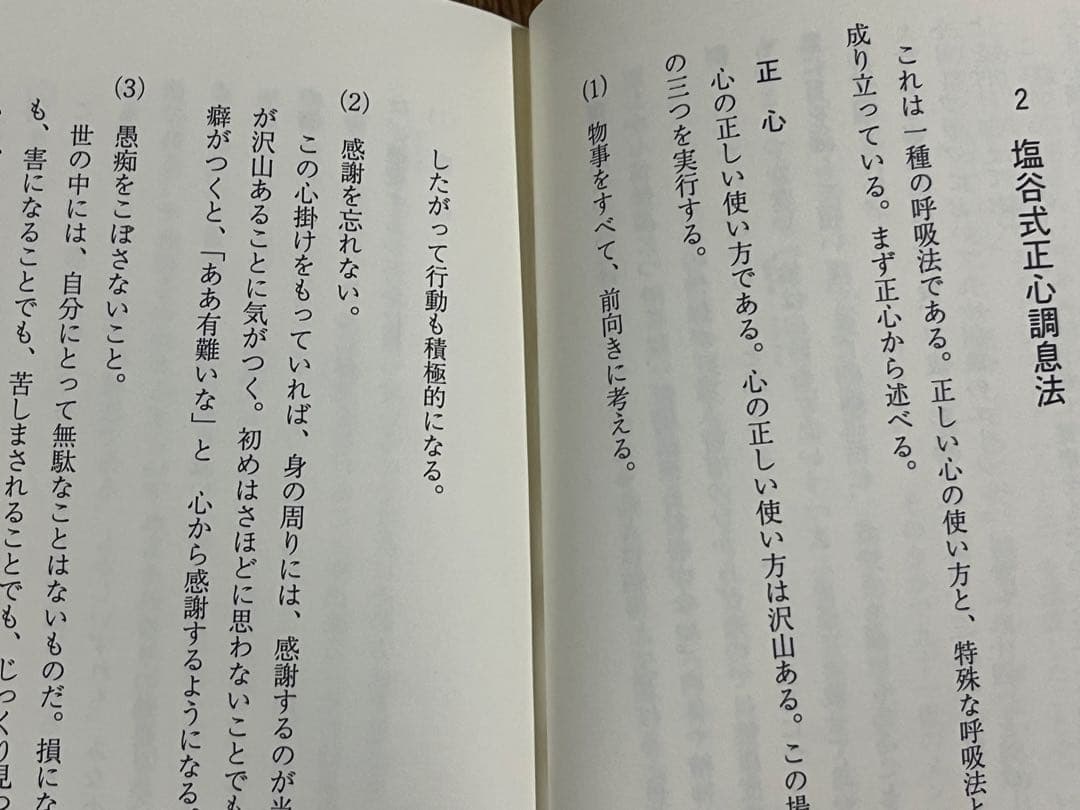 2 塩谷式正心調息法
これは一種の呼吸法である。正しい心の使い方と、特殊な呼吸法と
成り立っている。まず正心から述べる。
正心
心の正しい使い方である。心の正しい使い方は沢山ある。この
の三つを実行する。
(1) 物事をすべて、前向きに考える。
したがって行動も積極的になる。
(2) 感謝を忘れない。
この心掛けをもっていれば、身の周りには、感謝するのが
が沢山あることに気がつく。初めはさほどに思わないことでも
癖がつくと、「ああ有難いな」と 心から感謝するようになる。
(3) 愚痴をこぼさないこと。
世の中には、自分にとって無駄なことはないものだ。損にな
も、害になることでも、苦しまされることでも、じっくり見つ